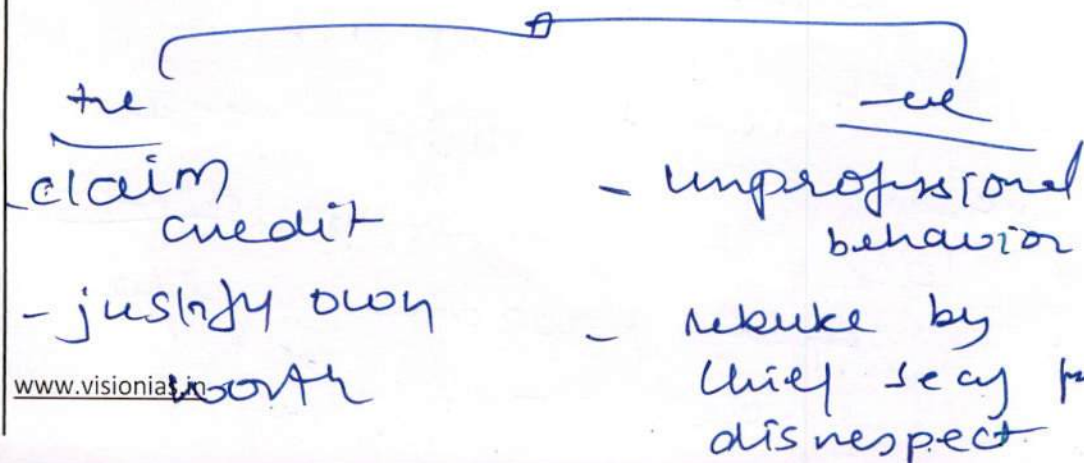 +ve
- claim
credit
- justify own
worth
-ve
- unprofessional
behavior
- rebuke by
Chief Secy
disrespect
www.visionias.in